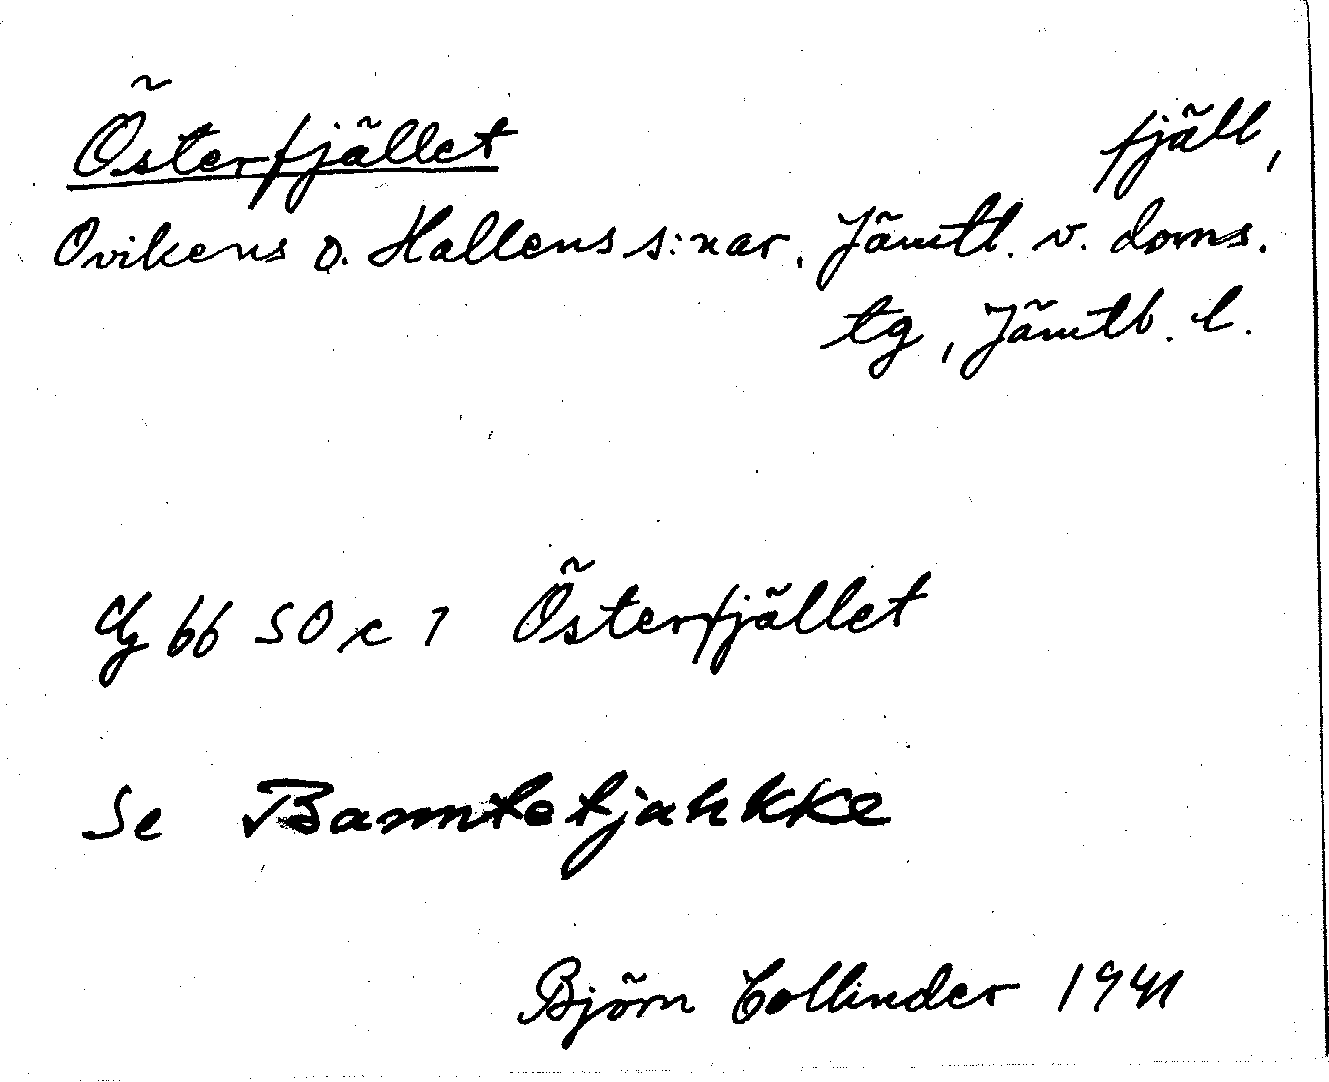 Österfjället fjäll,
Ovikens o. Hallens s:nar, Jämtl. v. doms.
tg, Jämtl. l.
Gg 66 SO c 7 Österfjället
Se Bamntetjahkke
Björn Collinder 1941